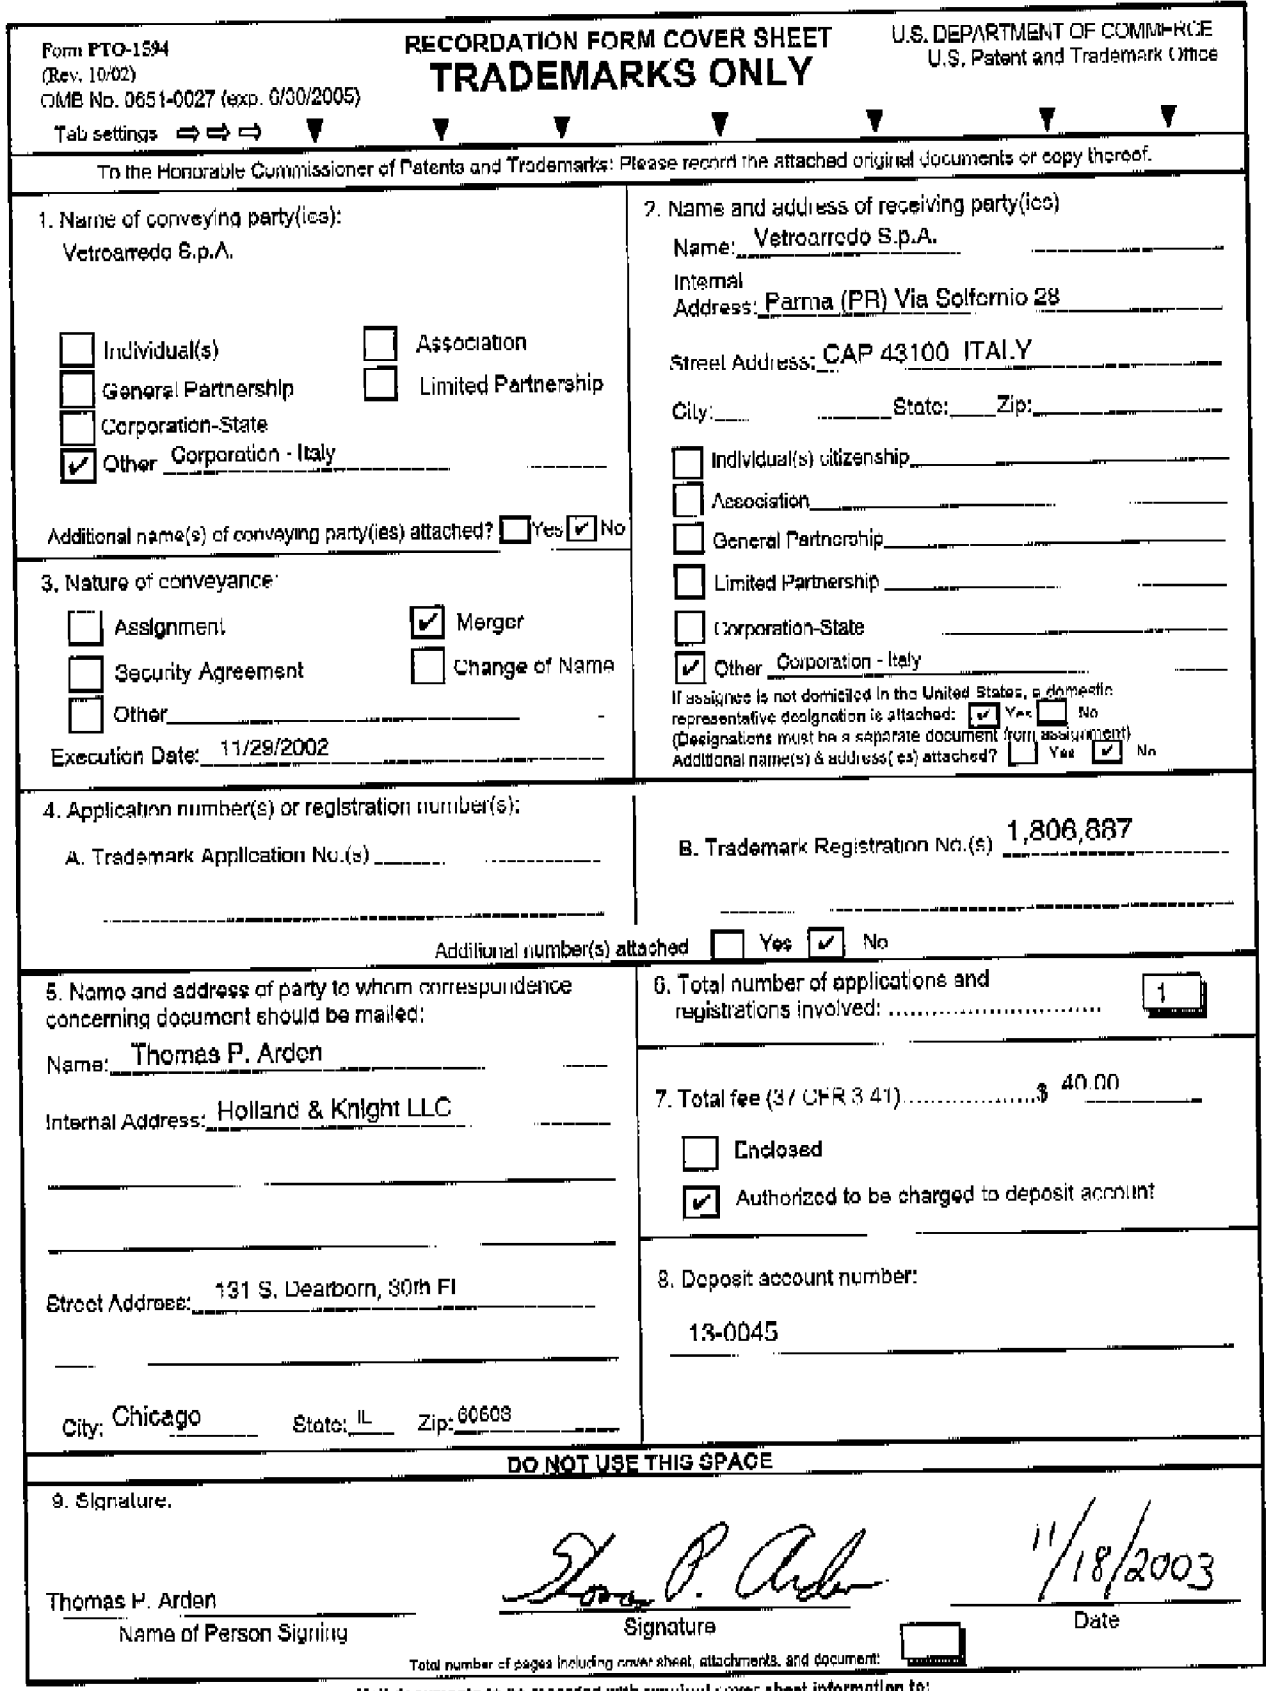 Form PTO-1594
(Rev. 10/02)
OMB No. 0651-0027 (exp. 6/30/2005)
RECORDATION FORM COVER SHEET
TRADEMARKS ONLY
U.S. DEPARTMENT OF COMMERCE
U.S. Patent and Trademark Office
Tab settings
To the Honorable Commissioner of Patents and Trademarks: Please record the attached original documents or copy thereof.
1. Name of conveying party(ies):
Vetroarredo S.p.A.
Individual(s)
Association
General Partnership
Limited Partnership
Corporation-State
Other Corporation - Italy
Additional name(s) of conveying party(ies) attached? Yes No
2. Name and address of receiving party(ies)
Name: Vetroarredo S.p.A.
Internal
Address: Parma (PR) Via Solfernio 28
Street Address: CAP 43100 ITALY
City: State: Zip:
Individual(s) citizenship
Association
General Partnership
Limited Partnership
Corporation-State
Other Corporation - Italy
If assignee is not domiciled in the United States, a domestic
representative designation is attached: Yes No
(Designations must be a separate document from assignment)
Additional name(s) & address(es) attached? Yes No
3. Nature of conveyance:
Assignment
Merger
Security Agreement
Change of Name
Other
Execution Date: 11/29/2002
4. Application number(s) or registration number(s):
A. Trademark Application No.(s)
B. Trademark Registration No.(s) 1,806,887
Additional number(s) attached Yes No
5. Name and address of party to whom correspondence
concerning document should be mailed:
Name: Thomas P. Arden
Internal Address: Holland & Knight LLC
Street Address: 131 S. Dearborn, 30th Fl
City: Chicago State: IL Zip: 60603
6. Total number of applications and
registrations involved: 1
7. Total fee (37 CFR 3.41) $ 40.00
Enclosed
Authorized to be charged to deposit account
8. Deposit account number:
13-0045
DO NOT USE THIS SPACE
9. Signature.
Thomas P. Arden
Name of Person Signing
Thomas P. Arden
Signature
11/18/2003
Date
Total number of pages including cover sheet, attachments, and document: